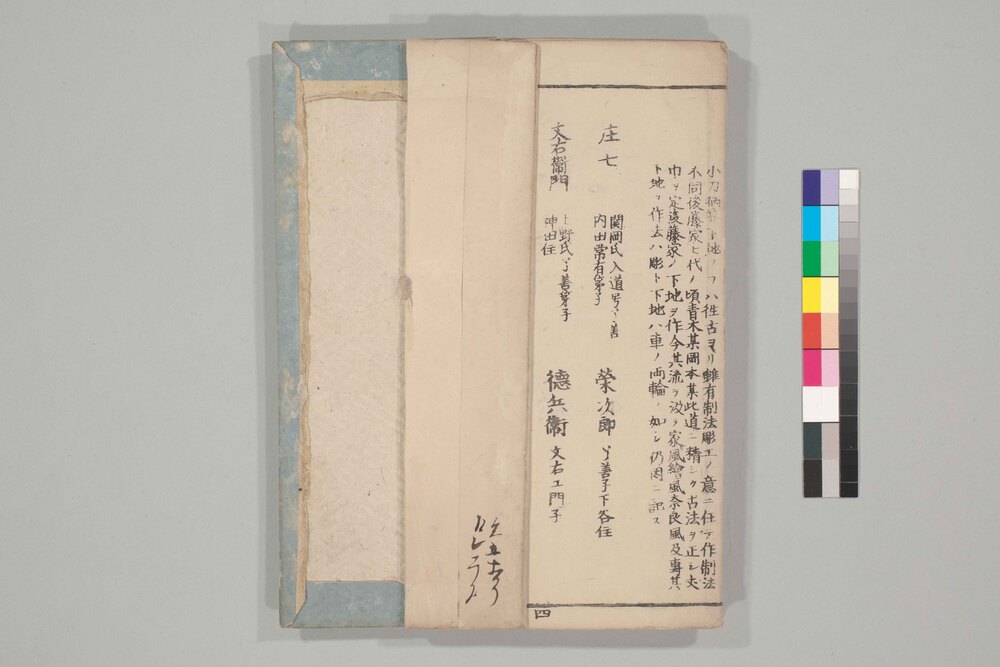 小刀柄等下地ヲ ハ徃古ヨリ雖有制法彫工ノ意ニ任テ作制法
不同後藤家七代ノ頃青木某岡本某此道ニ精シク古法ヲ正シ丈
巾ヲ定後藤家ノ下地ヲ作今其流ヲ汲テ家風繪風奈良風及專其
下地ヲ作去ハ彫ト下地ハ車ノ両輪ノ如シ仍因ニ記ス
庄七
関岡氏入道号了善
内田常有弟子
榮次郎
了善子下谷住
文右衞門
上野氏了善弟子
神田住
德兵衞
文右エ門子
四